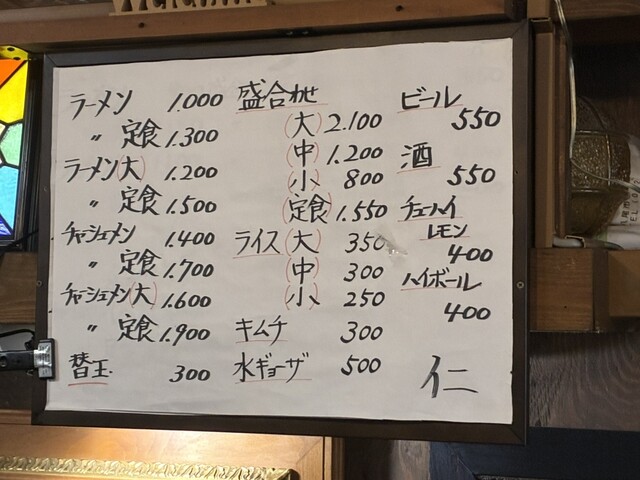 ラーメン 1.000
〃 定食 1.300
ラーメン(大) 1.200
〃 定食 1.500
チャーシューメン 1.400
〃 定食 1.700
チャーシューメン(大) 1.600
〃 定食 1.900
替玉 300
盛合わせ
(大) 2.100
(中) 1.200
(小) 800
(定食) 1.550
ライス(大) 350
(中) 300
(小) 250
キムチ 300
水ギョーザ 500
ビール
550
酒
550
チューハイ
レモン
400
ハイボール
400
仁